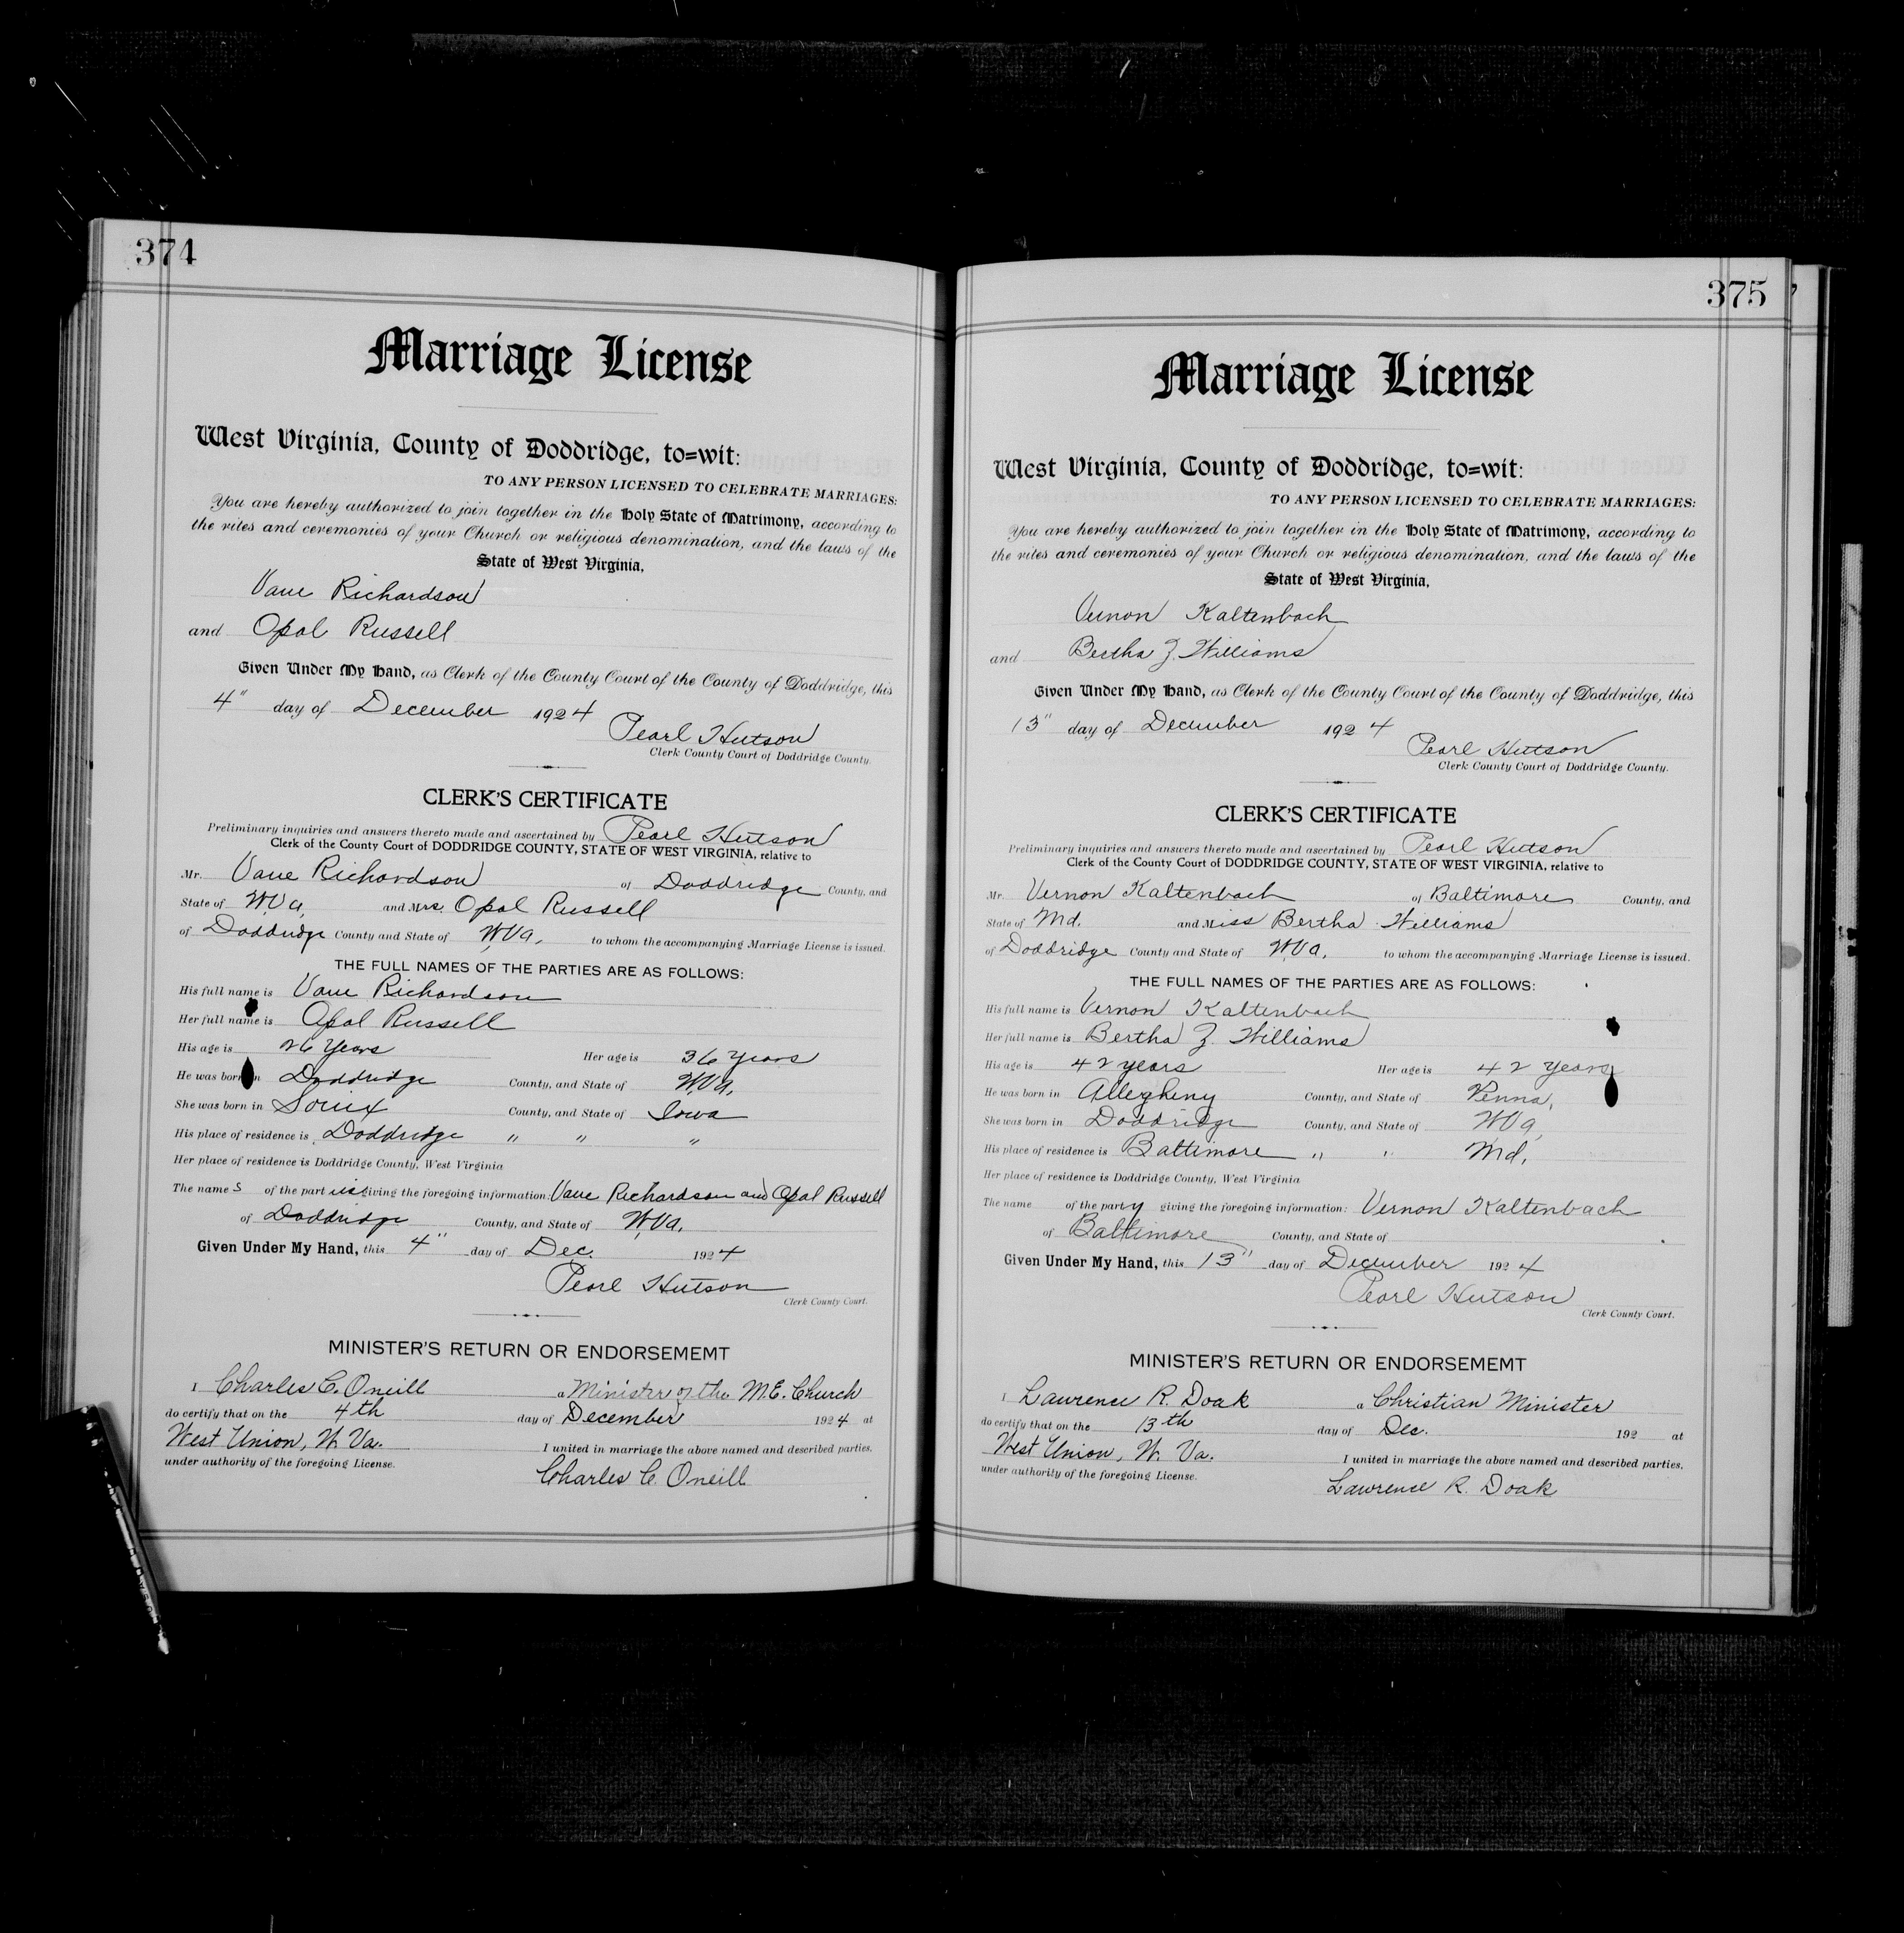 374
Marriage License
West Virginia, County of Doddridge, to=wit:
TO ANY PERSON LICENSED TO CELEBRATE MARRIAGES:
You are hereby authorized to join together in the Holy State of Matrimony, according to
the rites and ceremonies of your Church or religious denomination, and the laws of the
State of West Virginia,
Vane Richardson
and Opal Russell
Given Under My Hand, as Clerk of the County Court of the County of Doddridge, this
4" day of December 1924
Pearl Hutson
Clerk County Court of Doddridge County.
CLERK'S CERTIFICATE
Preliminary inquiries and answers thereto made and ascertained by Pearl Hutson
Clerk of the County Court of DODDRIDGE COUNTY, STATE OF WEST VIRGINIA, relative to
Mr. Vane Richardson of Doddridge County, and
State of W.Va, and Mrs. Opal Russell
of Doddridge County and State of W.Va, to whom the accompanying Marriage License is issued.
THE FULL NAMES OF THE PARTIES ARE AS FOLLOWS:
His full name is Vane Richardson
Her full name is Opal Russell
His age is 26 Years Her age is 36 Years
He was born in Doddridge County, and State of W.Va.
She was born in Souix County, and State of Iowa
His place of residence is Doddridge " " "
Her place of residence is Doddridge County, West Virginia
The names of the parties giving the foregoing information: Vane Richardson and Opal Russell
of Doddridge County, and State of W.Va.
Given Under My Hand, this 4" day of Dec. 1924
Pearl Hutson
Clerk County Court.
MINISTER'S RETURN OR ENDORSEMEMT
I Charles C. Oneill a Minister of the M.E. Church
do certify that on the 4th day of December 1924 at
West Union, W. Va. I united in marriage the above named and described parties,
under authority of the foregoing License.
Charles C. Oneill
375
Marriage License
West Virginia, County of Doddridge, to=wit:
TO ANY PERSON LICENSED TO CELEBRATE MARRIAGES:
You are hereby authorized to join together in the Holy State of Matrimony, according to
the rites and ceremonies of your Church or religious denomination, and the laws of the
State of West Virginia,
Vernon Kaltenbach
and Bertha Z. Williams
Given Under My Hand, as Clerk of the County Court of the County of Doddridge, this
13" day of December 1924
Pearl Hutson
Clerk County Court of Doddridge County.
CLERK'S CERTIFICATE
Preliminary inquiries and answers thereto made and ascertained by Pearl Hutson
Clerk of the County Court of DODDRIDGE COUNTY, STATE OF WEST VIRGINIA, relative to
Mr. Vernon Kaltenbach of Baltimore County, and
State of Md. and Miss Bertha Williams
of Doddridge County and State of W.Va. to whom the accompanying Marriage License is issued.
THE FULL NAMES OF THE PARTIES ARE AS FOLLOWS:
His full name is Vernon Kaltenbach
Her full name is Bertha Z. Williams
His age is 42 years Her age is 42 Years
He was born in Allegheny County, and State of Penna,
She was born in Doddridge County, and State of W.Va,
His place of residence is Baltimore " " Md,
Her place of residence is Doddridge County, West Virginia
The name of the party giving the foregoing information: Vernon Kaltenbach
of Baltimore County, and State of
Given Under My Hand, this 13" day of December 1924
Pearl Hutson
Clerk County Court.
MINISTER'S RETURN OR ENDORSEMEMT
I Lawrence R. Doak a Christian Minister
do certify that on the 13th day of Dec. 192 at
West Union, W. Va. I united in marriage the above named and described parties,
under authority of the foregoing License.
Lawrence R. Doak